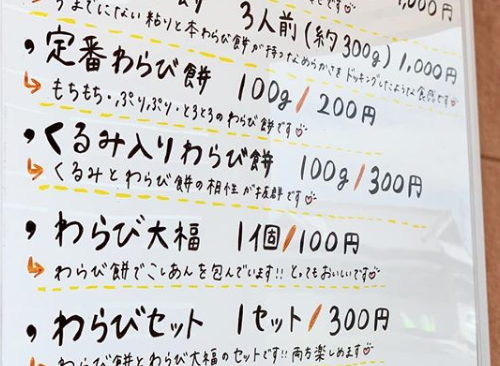 餅 3人前(約300g) 1,000円
うまでにない粘りと本わらび餅が持つなめらかさをドッキングしたような食感です
定番わらび餅 100g/200円
もちもち・ぷりぷり・とろとろのわらび餅です
くるみ入りわらび餅 100g/300円
くるみとわらび餅の相性が抜群です
わらび大福 1個/100円
わらび餅でこしあんを包んでいます!! とってもおいしいです
わらびセット 1セット/300円
わらび餅とわらび大福のセットです!! 両方楽しめます